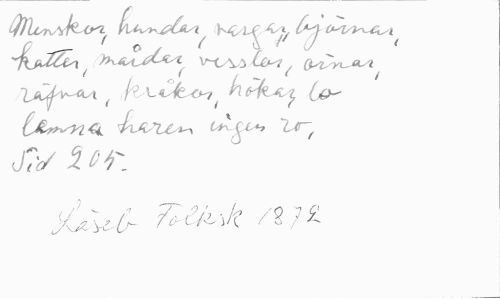 Menskor, hundar, vargar, björnar,
katter, mårdar, vesslor, örnar,
räfvar, kråkor, hökar, lo
lemna haren ingen ro,
Sid 205.
Läseb Folksk 1872